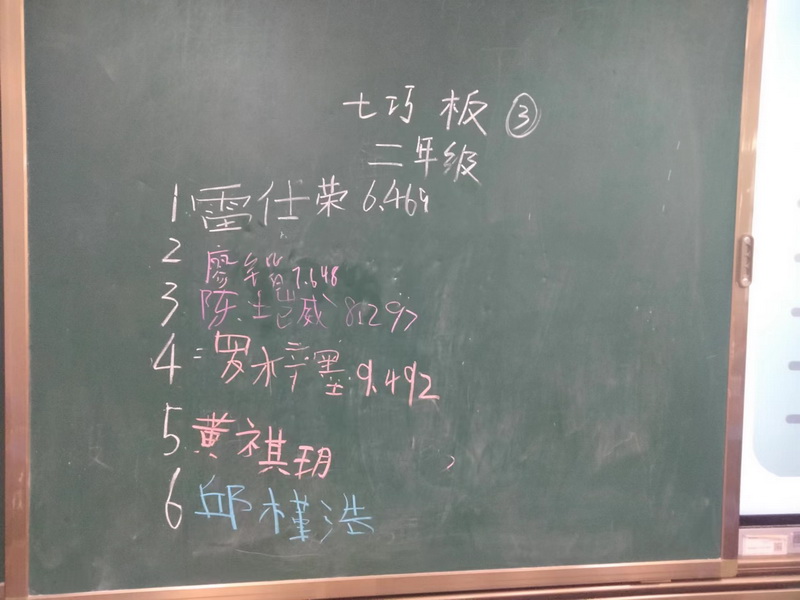 七巧板③
二年级
1 雷仕荣 6.469
2 廖 7.648
3 陈 威 8.297
4 罗梓墨 9.492
5 黄祺玥
6 邱槿浩